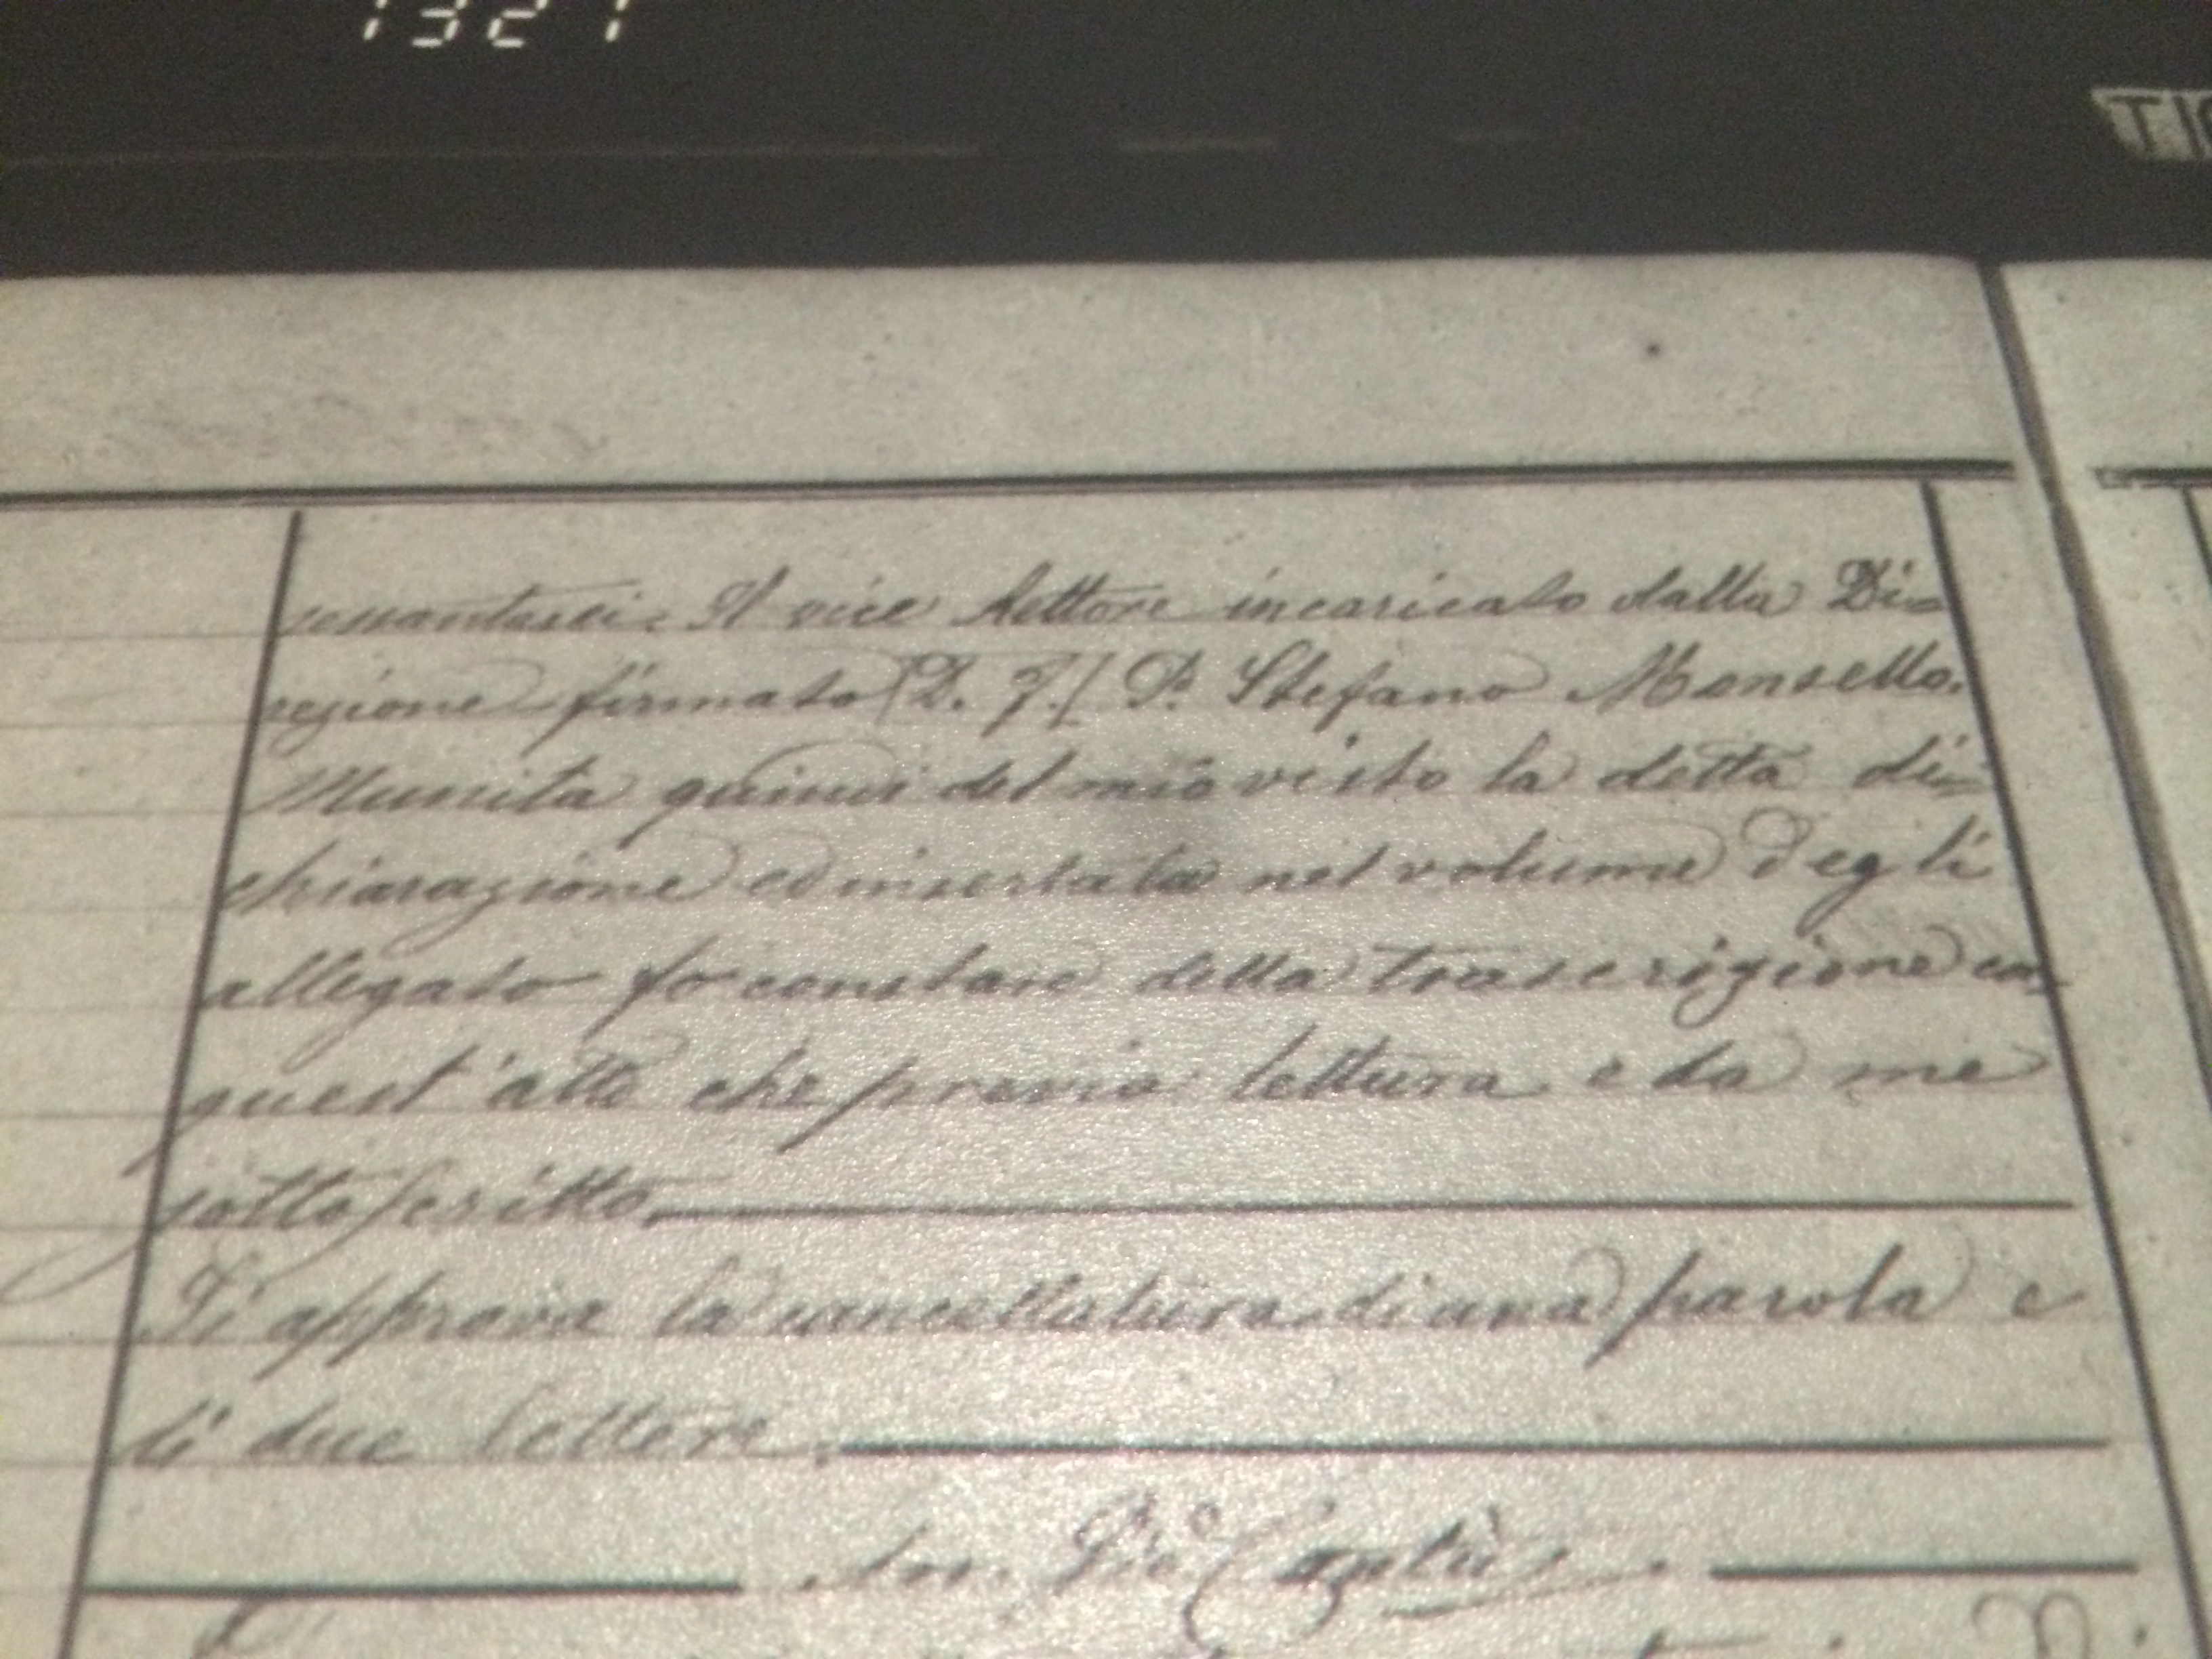 1321
TI
sessantasei. Il vice Rettore incaricato dalla Di=
rezione firmato [D. F.] P. Stefano Monsello.
Munita quindi del mio visto la detta di=
chiarazione ed insertata nel volume degli
allegato fo constare della trascrizione con
quest'atto che previa lettura è da me
sottoscritto.
Si approva la cancellatura di una parola e
di due lettere.
Cantù